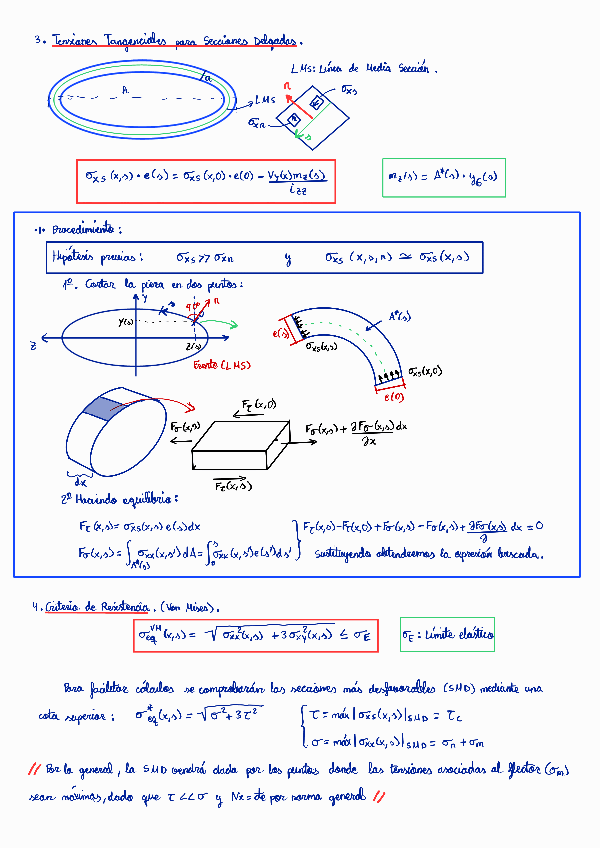 3. Tensiones Tangenciales para Secciones Delgadas.
LMS: Línea de Media Sección.
A
a
LMS
n
σxs
σxn
s
σxs(x,s)·e(s) = σxs(x,0)·e(0) - Vy(x)mz(s)/izz
mz(s) = A*(s)·yG(s)
·1· Procedimiento:
Hipótesis previas: σxs >> σxn y σxs (x,s,n) ≃ σxs(x,s)
1º. Cortar la pieza en dos puntos:
y
s
90º
n
y(s)
z
z(s)
Esvelto (LMS)
e(s)
σxs(x,s)
A*(s)
σxs(x,0)
e(0)
dx
Fτ(x,0)
Fσ(x,s)
Fσ(x,s) + ∂Fσ(x,s)/∂x dx
Fτ(x,s)
2º Haciendo equilibrio:
Fτ(x,s) = σxs(x,s) e(s)dx
Fτ(x,s)-Fτ(x,0)+Fσ(x,s)-Fσ(x,s)+∂Fσ(x,s)/∂ dx = 0
Fσ(x,s) = ∫A*(s) σxx(x,s')dA = ∫0^s σxx(x,s')e(s')ds'
Sustituyendo obtendremos la expresión buscada.
4. Criterio de Resistencia. (Von Mises).
σeq^VM(x,s) = √σxx²(x,s) + 3σxy²(x,s) ≤ σE
σE: Límite elástico
Para facilitar cálculos se comprobarán las secciones más desfavorables (SMD) mediante una
cota superior: σeq*(x,s) = √σ²+3τ²
τ = máx|σxs(x,s)|SMD = τc
σ = máx|σxx(x,s)|SMD = σn + σm
// Por lo general, la SMD vendrá dada por los puntos donde las tensiones asociadas al flector (σm)
sean máximas, dado que τ << σ y Nx = cte por norma general //